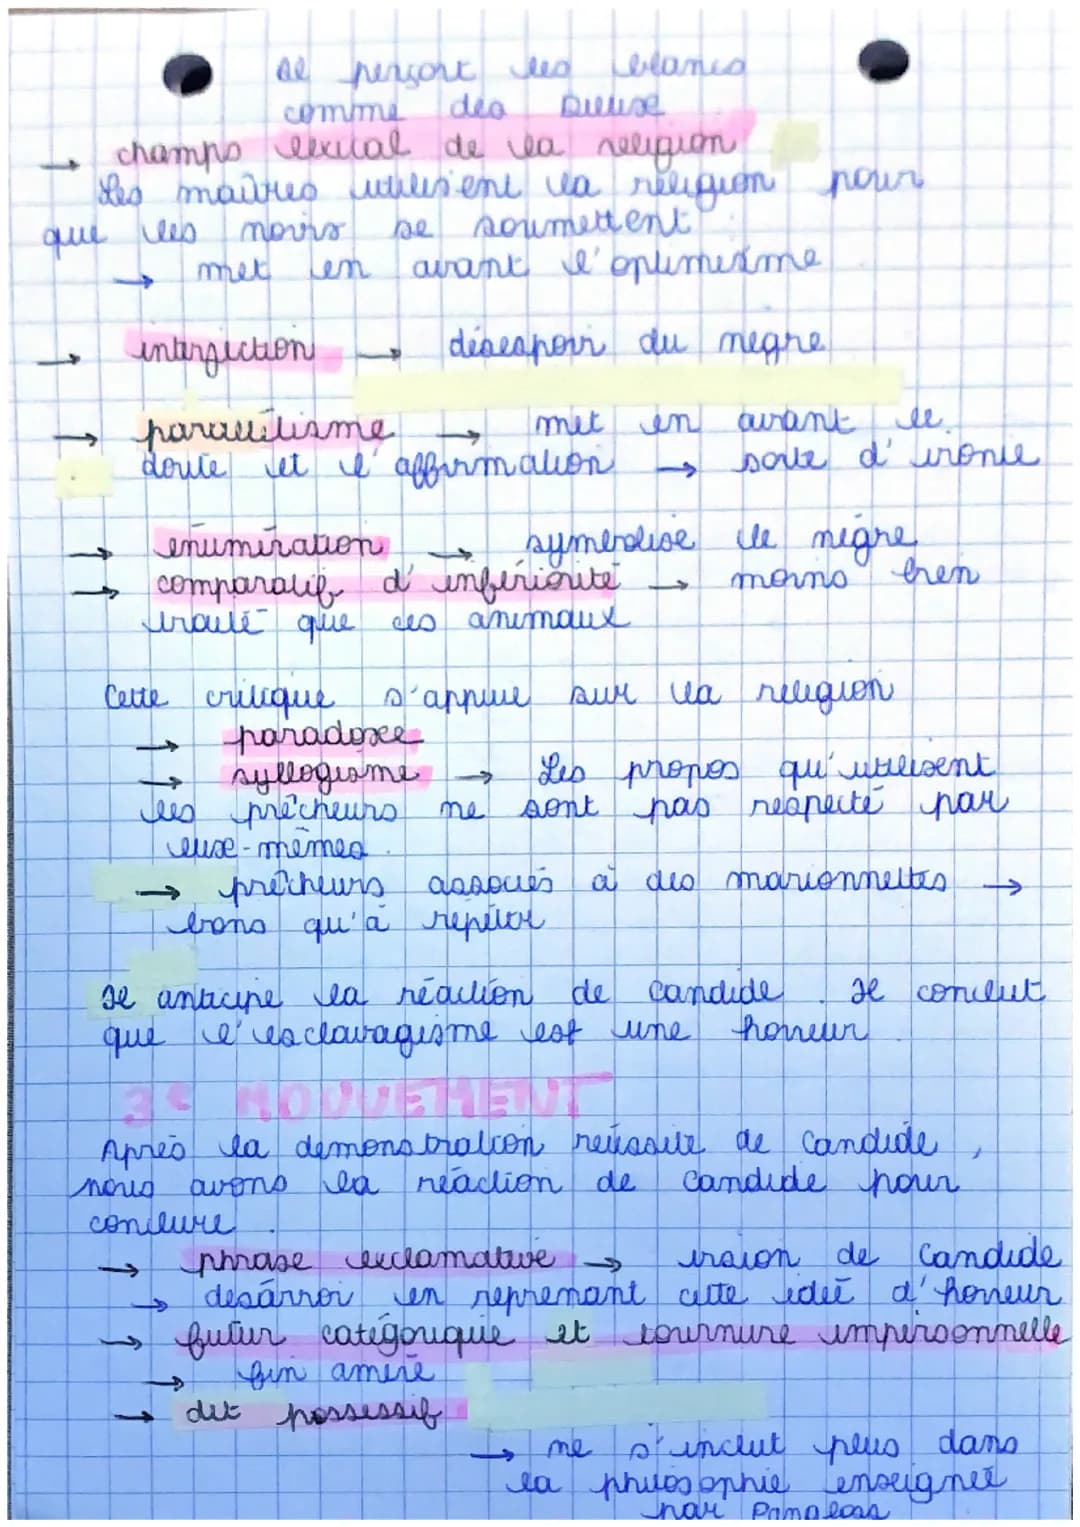 Il perçoit les blancs
comme des Dieux
→ champs lexical de la religion
Les maîtres utilisent la religion pour
que les noirs se soumettent
→ met en avant l'optimisme
→ interjection → désespoir du nègre
→ parallélisme → met en avant le
doute et l'affirmation → sorte d'ironie
→ énumération → symbolise le nègre
→ comparatif d'infériorité → moins bien
traité que les animaux
Cette critique s'appuie sur la religion
→ paradoxe
→ syllogisme → Les propos qu'utilisent
les prêcheurs ne sont pas respecté par
eux-mêmes.
→ prêcheurs associés à des marionnettes →
bons qu'à répéter
Il anticipe la réaction de Candide. Il conclut
que l'esclavagisme est une horreur
3e MOUVEMENT
Après la démonstration réussite de Candide,
nous avons la réaction de Candide pour
conclure.
→ phrase exclamative → vision de Candide
→ désarroi en reprenant cette idée d'horreur
→ futur catégorique et tournure impersonnelle
→ fin amère
→ det possessif
→ ne s'inclut plus dans
la philosophie enseignée
par Pangloss